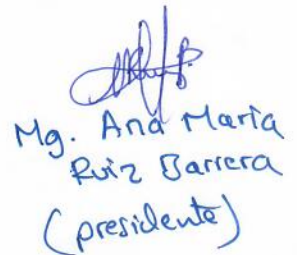 Mg. Ana María
Ruiz Barrera
(presidente)